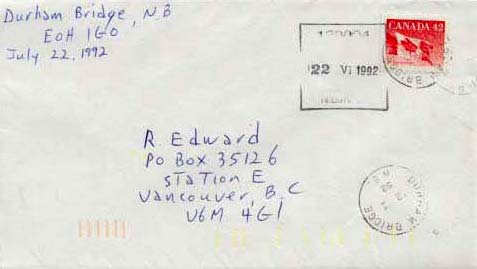 Durham Bridge, N.B
E0H 1G0
July 22, 1992
CANADA 42
22 VI 1992
R. Edward
PO Box 35126
Station E
Vancouver, B, C
V6M 4G1
DURHAM BRIDGE
N.B.